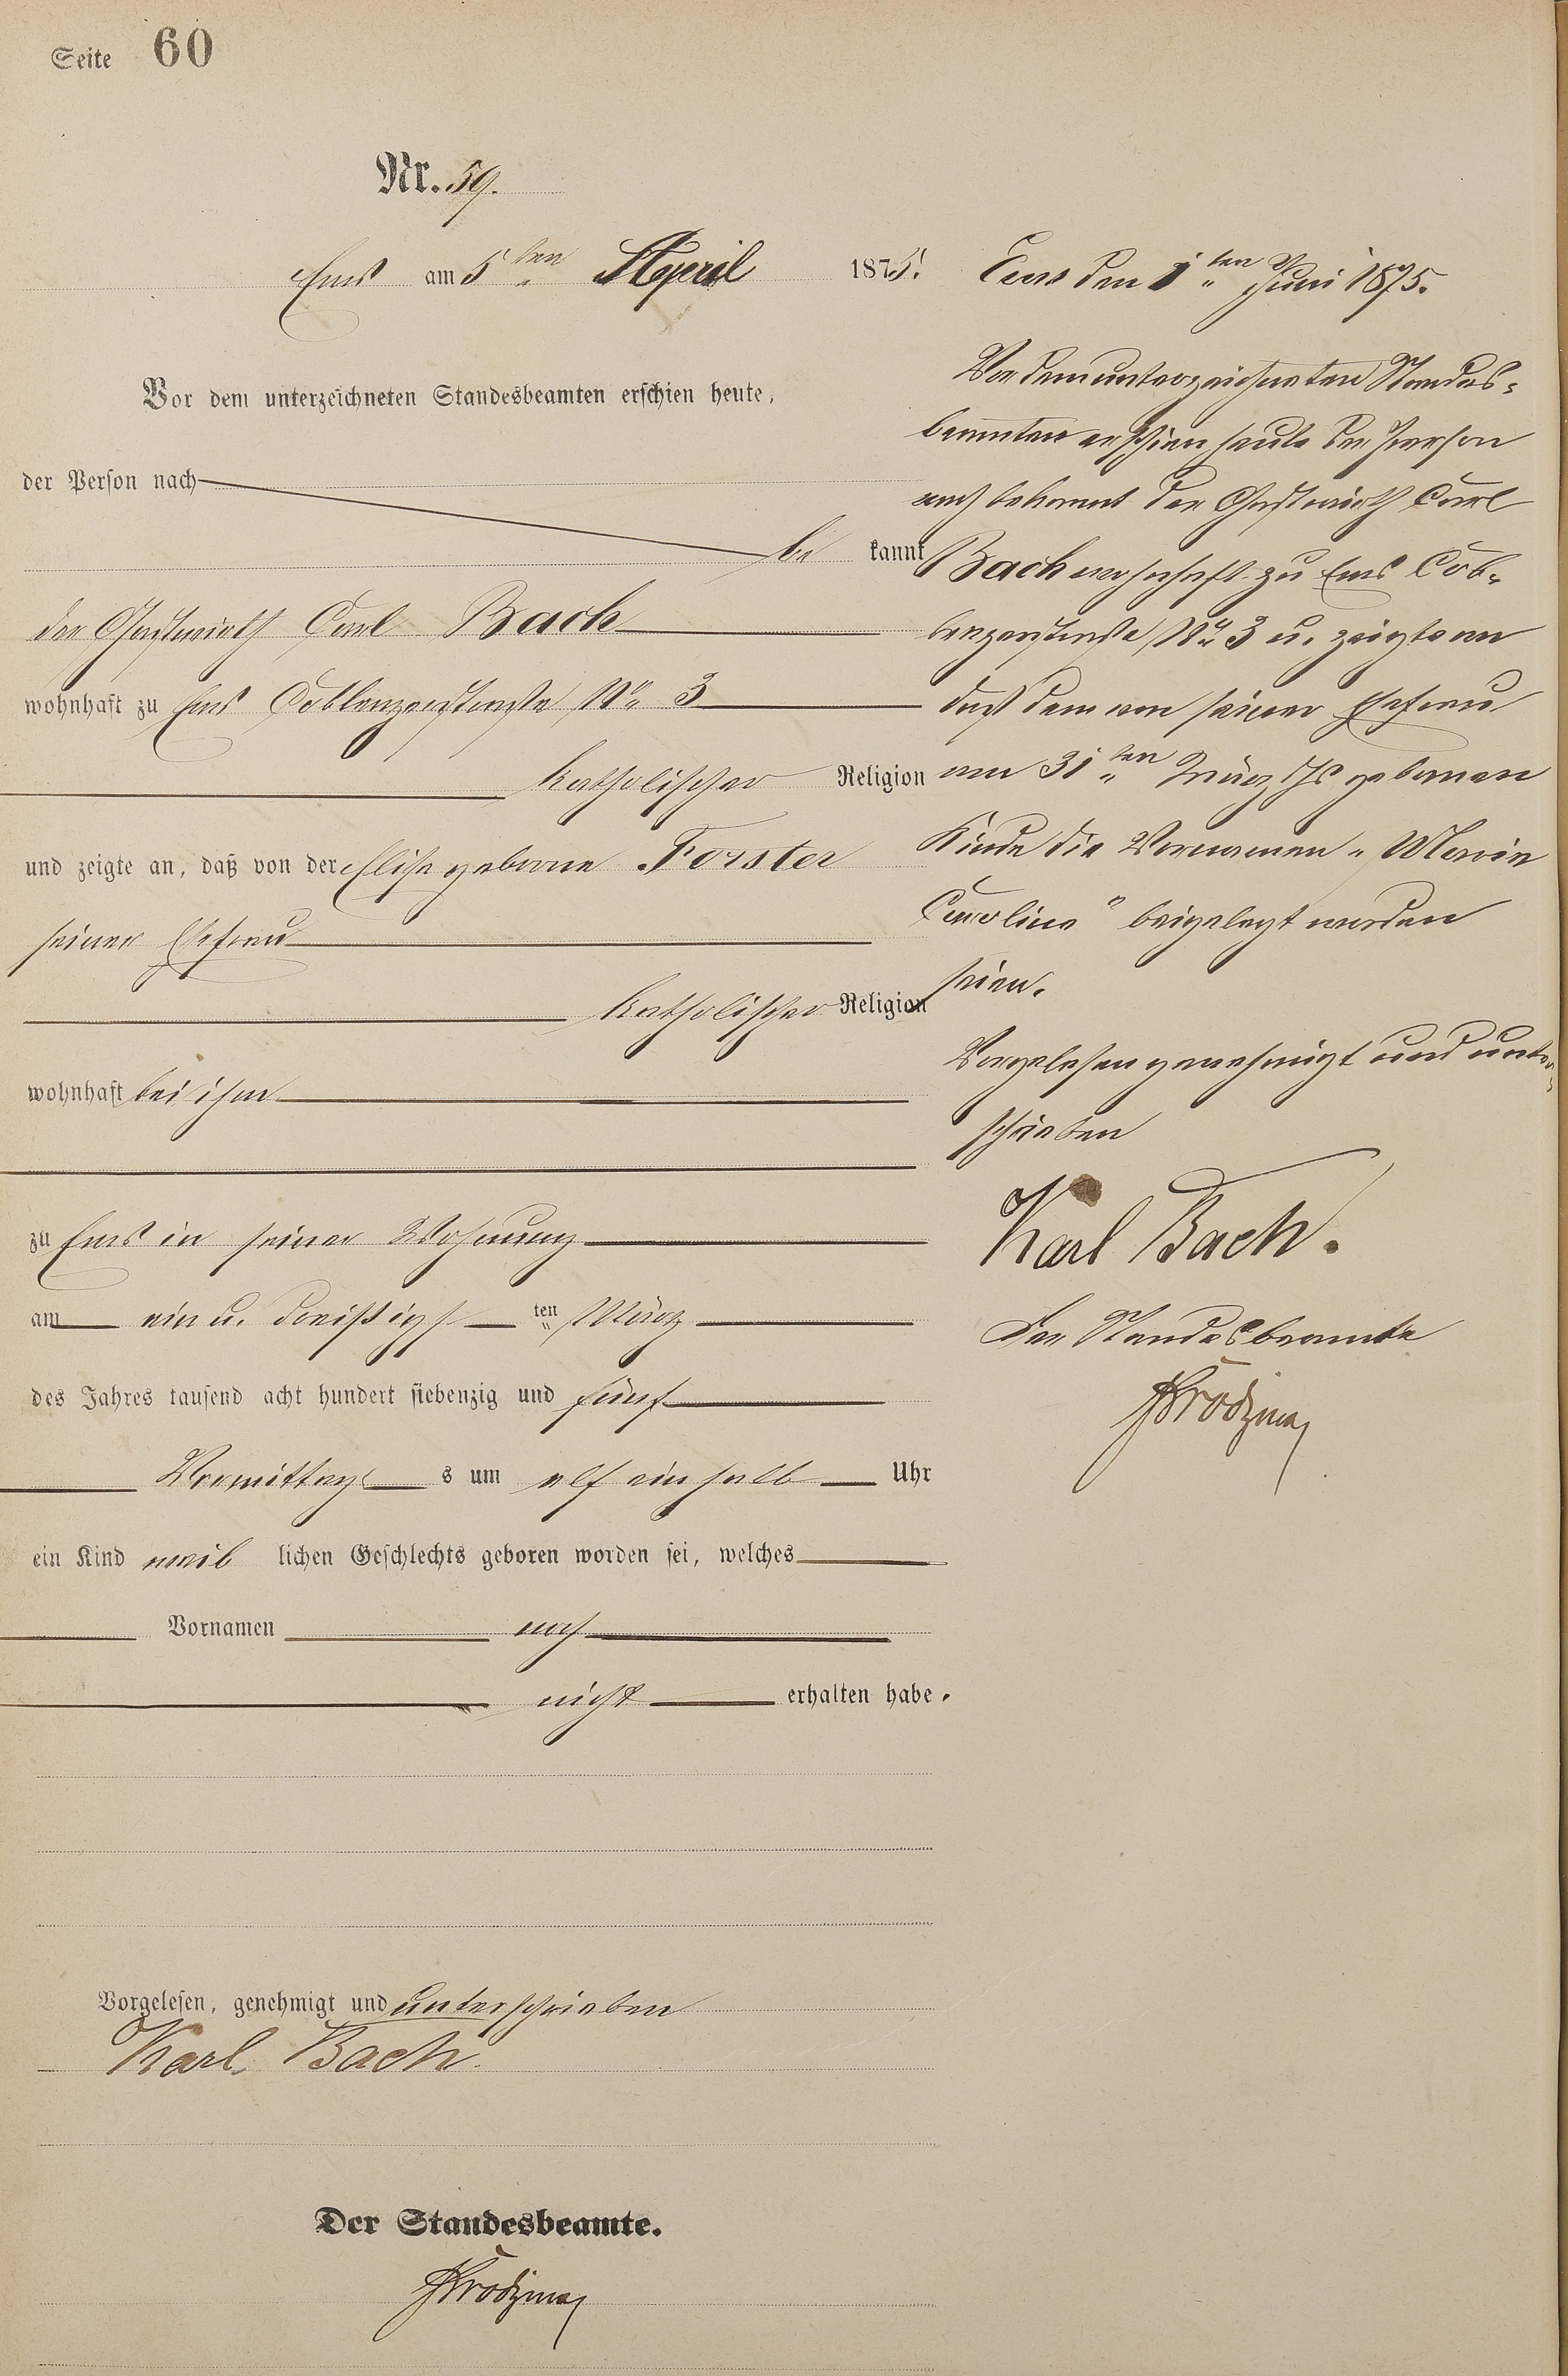 Seite 60
Nr. 59.
Ems am 5ten April 1875.
Vor dem unterzeichneten Standesbeamten erschien heute,
der Person nach
bekannt
der Gastwirth Carl Bach
wohnhaft zu Ems Coblenzerstraße No 3
katholischer Religion
und zeigte an, daß von der Elise geborne Forster
seiner Ehefrau
katholischer Religion
wohnhaft bei ihm
zu Ems in seiner Wohnung
am ein u. dreißigsten März
des Jahres tausend acht hundert siebenzig und fünf
Vormittags um elf einhalb Uhr
ein Kind weiblichen Geschlechts geboren worden sei, welches
Vornamen noch
nicht erhalten habe.
Vorgelesen, genehmigt und unterschrieben
Karl Bach.
Der Standesbeamte.
Ems den 1ten Juni 1875.
Vor dem unterzeichneten Standes-
beamten erschien heute der Person
nach bekannt der Gastwirth Carl
Bach wohnhaft zu Ems Cob-
lenzerstraße No 3 u. zeigte an
daß dem von seiner Ehefrau
am 31ten März Js geborenen
Kinde die Vornamen „Maria
Carolina" beigelegt worden
seien.
Vorgelesen genehmigt und unter-
schrieben
Karl Bach.
Der Standesbeamte